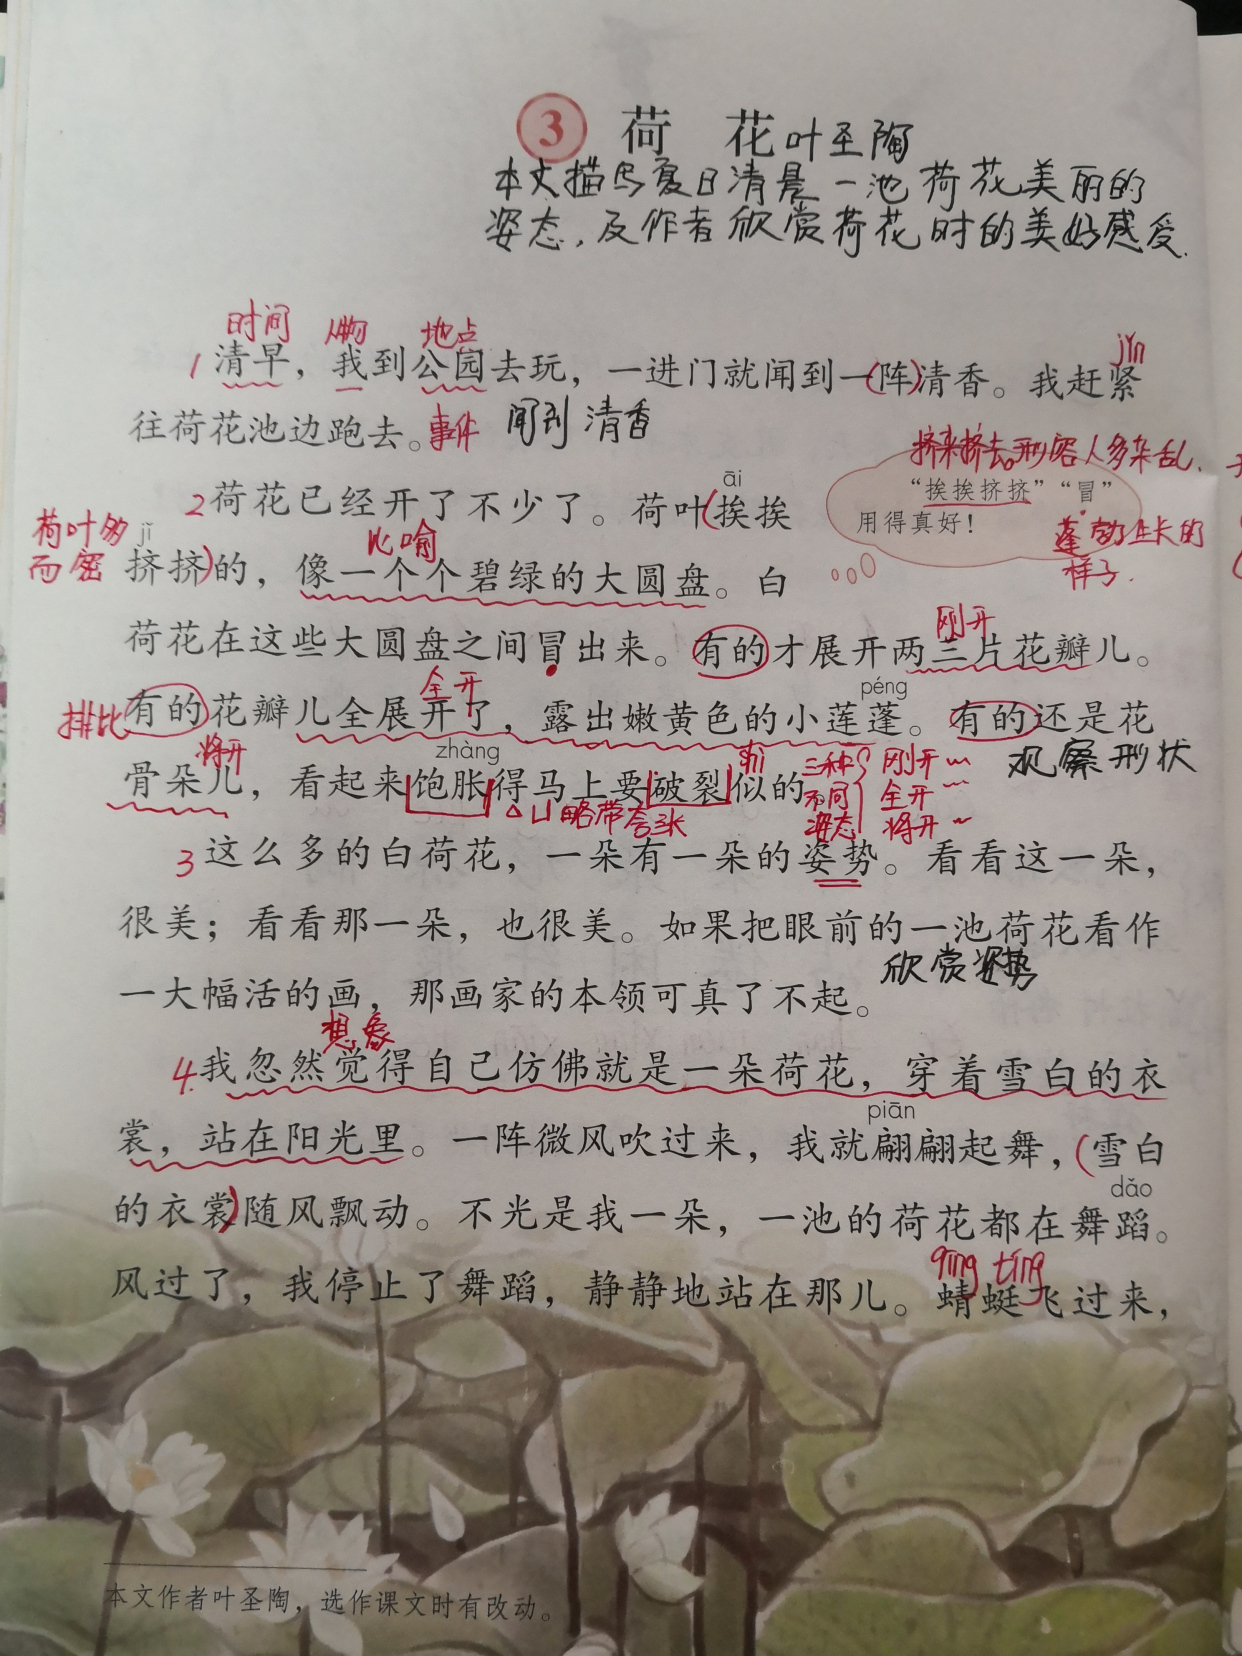 3 荷 花 叶圣陶
本文描写夏日清晨一池荷花美丽的
姿态，及作者欣赏荷花时的美好感受.
时间 人物 地点
jǐn
1 清早，我到公园去玩，一进门就闻到一(阵)清香。我赶紧
往荷花池边跑去。事件 闻到清香
挤来挤去。形容人多杂乱.
“挨挨挤挤”“冒”
用得真好！
蓬勃生长的
样子.
āi
2 荷花已经开了不少了。荷叶(挨挨
荷叶多
而密
jǐ
比喻
挤挤)的，像一个个碧绿的大圆盘。白
刚开
荷花在这些大圆盘之间冒出来。有的才展开两三片花瓣儿。
全开
péng
排比
有的花瓣儿全展开了，露出嫩黄色的小莲蓬。有的还是花
将开
zhàng
shì
骨朵儿，看起来饱胀得马上要破裂似的
观察形状
三种
不同
姿态
刚开
全开
将开
略带夸张
3 这么多的白荷花，一朵有一朵的姿势。看看这一朵，
很美；看看那一朵，也很美。如果把眼前的一池荷花看作
欣赏姿势
一大幅活的画，那画家的本领可真了不起。
想象
4. 我忽然觉得自己仿佛就是一朵荷花，穿着雪白的衣
piān
裳，站在阳光里。一阵微风吹过来，我就翩翩起舞，(雪白
dǎo
的衣裳)随风飘动。不光是我一朵，一池的荷花都在舞蹈。
qīng tíng
风过了，我停止了舞蹈，静静地站在那儿。蜻蜓飞过来，
本文作者叶圣陶，选作课文时有改动。